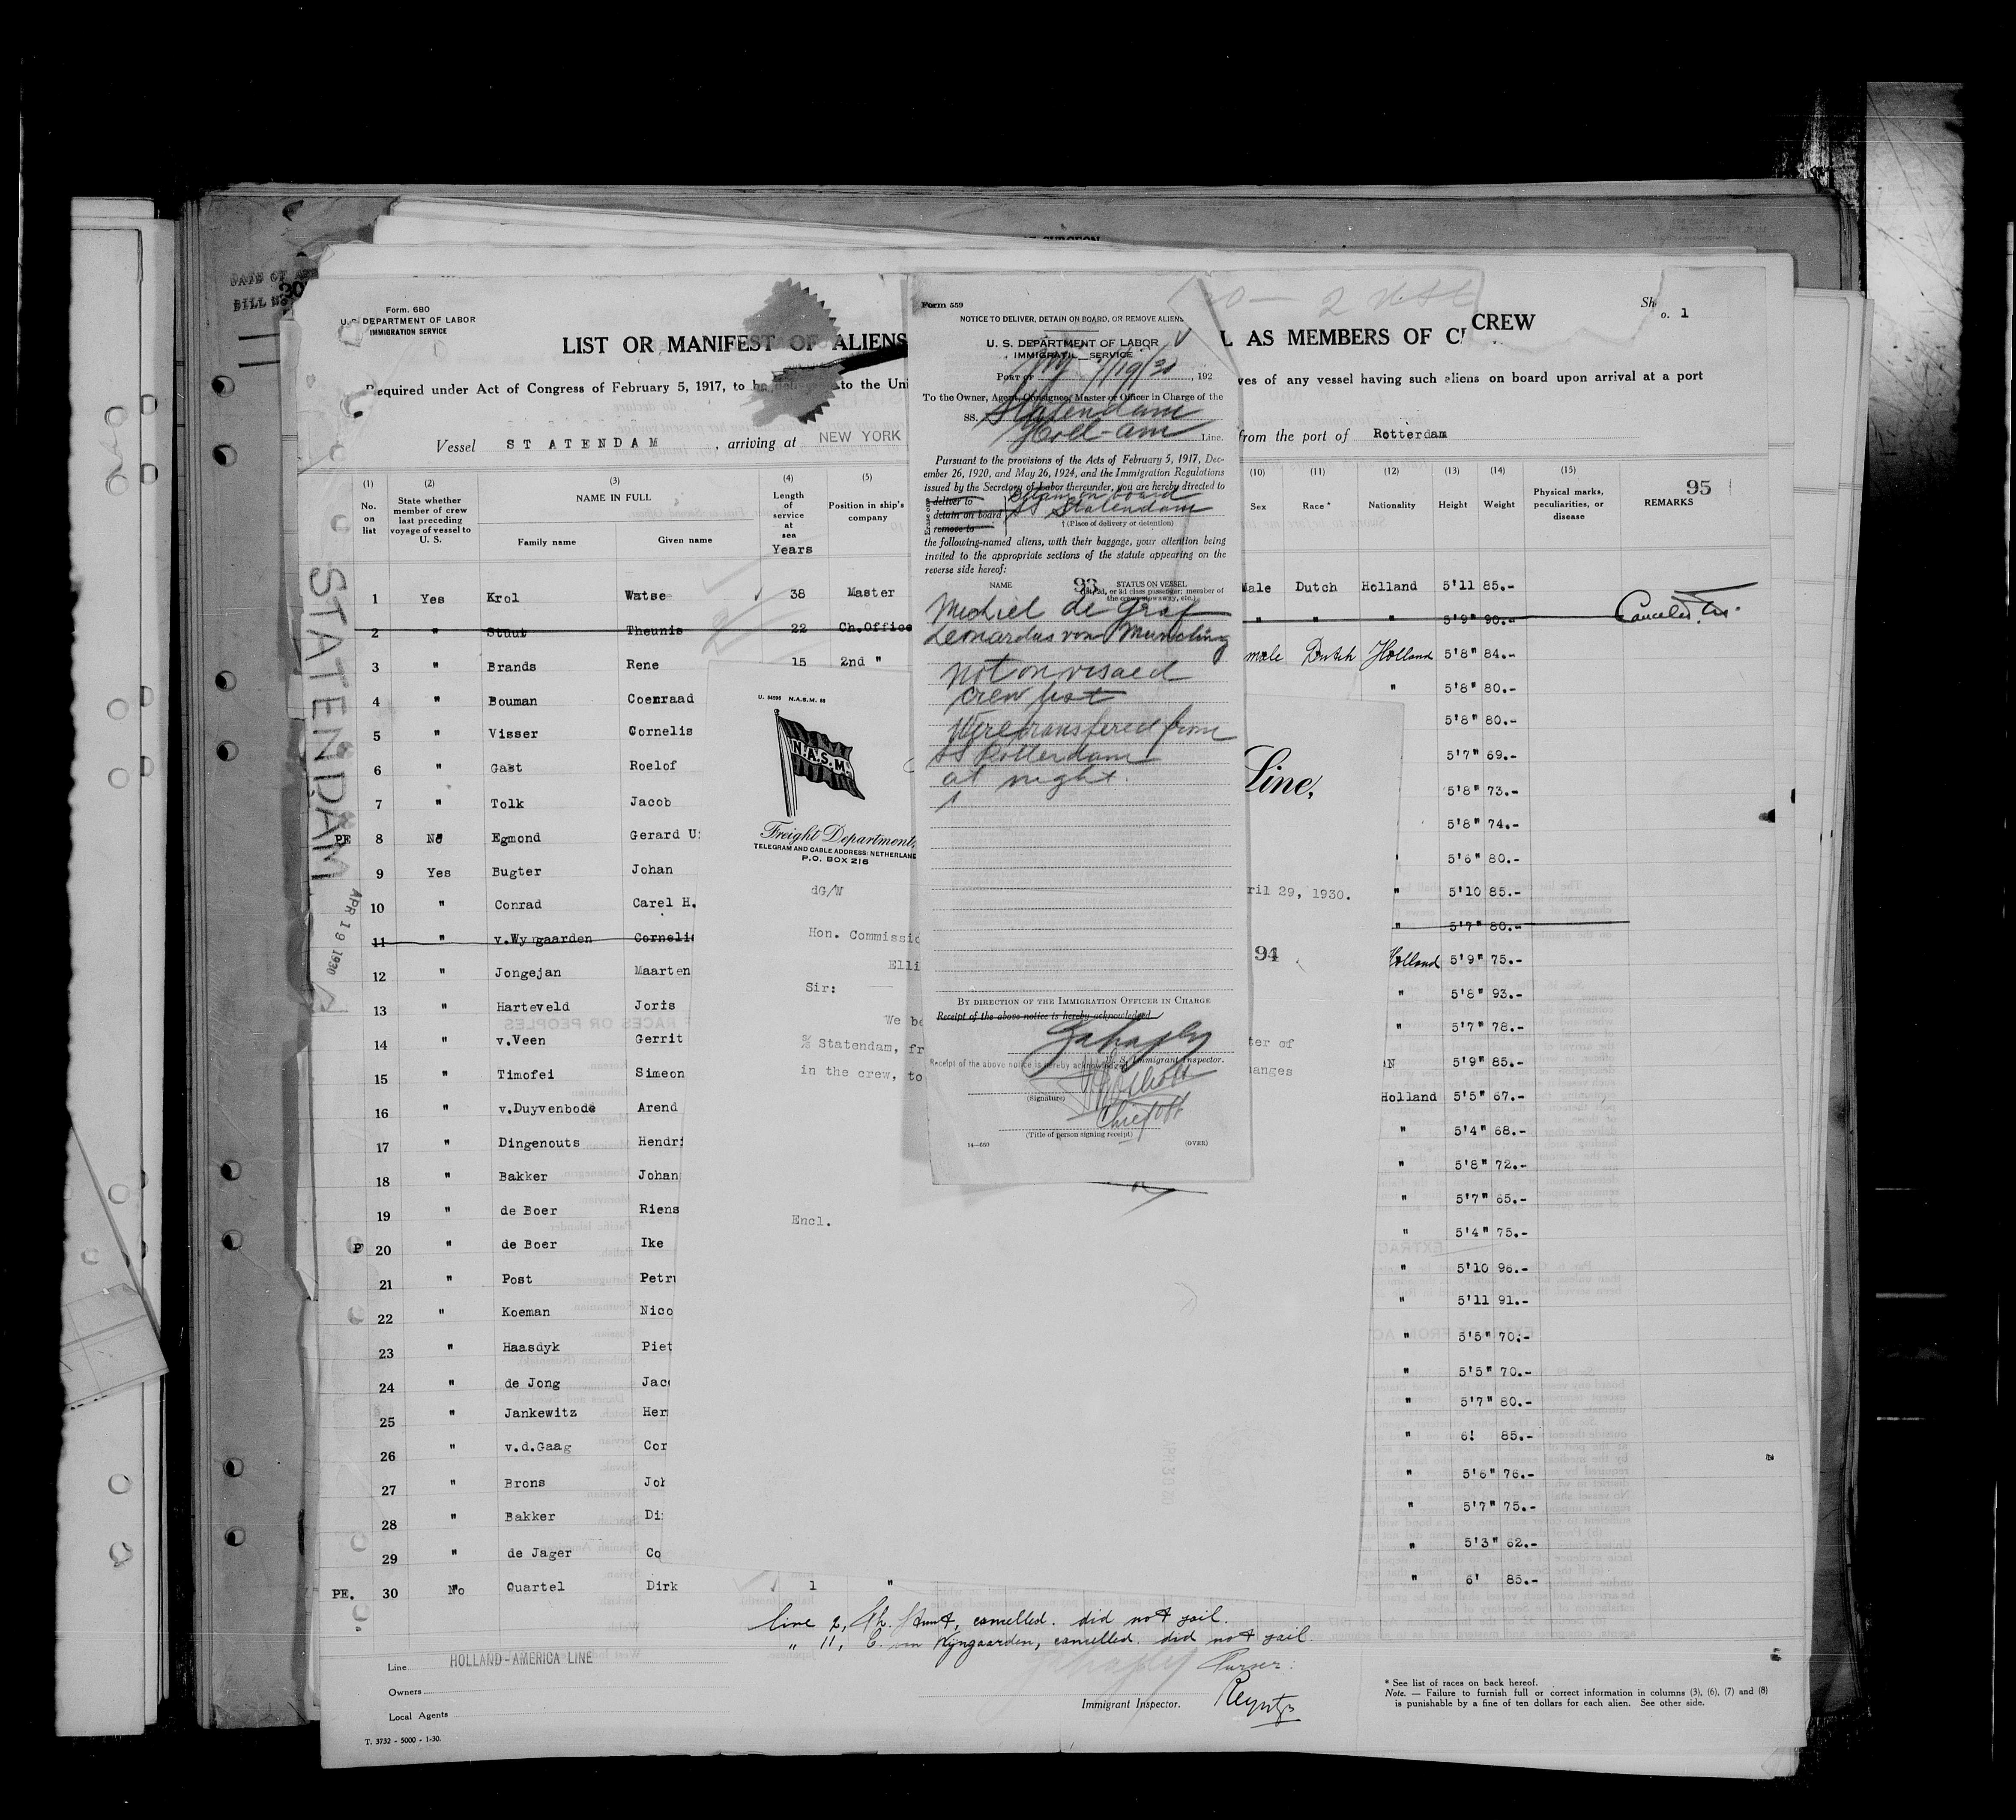 DATE OF
BILL
30
SURGEON
Form. 680
U. S. DEPARTMENT OF LABOR
IMMIGRATION SERVICE
Sh
o. 1
LIST OR MANIFEST OF ALIENS
L AS MEMBERS OF CREW
Required under Act of Congress of February 5, 1917, to be to the Uni
ves of any vessel having such aliens on board upon arrival at a port
Vessel STATENDAM , arriving at NEW YORK
from the port of Rotterdam
STATENDAM
APR 19 1930
(1) (2) (3) (4) (5) (10) (11) (12) (13) (14) (15)
No. on list
State whether member of crew last preceding voyage of vessel to U. S.
NAME IN FULL
Family name Given name
Length of service at sea
Years
Position in ship's company
Sex Race * Nationality Height Weight
Physical marks, peculiarities, or disease
REMARKS
95
1 Yes Krol Watse 38 Master Male Dutch Holland 5'11 85.-
2 " Stuut Theunis 22 Ch.Office " " " 5'9" 90.-
3 " Brands Rene 15 2nd " male Dutch Holland 5'8" 84.-
4 " Bouman Coenraad " 5'8" 80.-
5 " Visser Cornelis 5'8" 80.-
6 " Gast Roelof 5'7" 69.-
7 " Tolk Jacob 5'8" 73.-
PE 8 No Egmond Gerard U 5'8" 74.-
9 Yes Bugter Johan 5'6" 80.-
10 " Conrad Carel H. " 5'10 85.-
11 " v.Wyngaarden Cornelis " 5'7" 80.-
12 " Jongejan Maarten Holland 5'9" 75.-
13 " Harteveld Joris " 5'8" 93.-
14 " v.Veen Gerrit " 5'7" 78.-
15 " Timofei Simeon 5'9" 85.-
16 " v.Duyvenbode Arend Holland 5'5" 67.-
17 " Dingenouts Hendri " 5'4" 68.-
18 " Bakker Johan " 5'8" 72.-
19 " de Boer Riens " 5'7" 65.-
P 20 " de Boer Ike " 5'4" 75.-
21 " Post Petr " 5'10 96.-
22 " Koeman Nico " 5'11 91.-
23 " Haasdyk Piet " 5'5" 70.-
24 " de Jong Jac " 5'5" 70.-
25 " Jankewitz Her " 5'7" 80.-
26 " v.d.Gaag Cor " 6' 85.-
27 " Brons Joh " 5'6" 76.-
28 " Bakker Di " 5'7" 75.-
29 " de Jager Co " 5'3" 62.-
PE. 30 No Quartel Dirk 1 " " 6' 85.-
line 2, Th. Stuut, cancelled. did not sail.
" 11, C. van Wijngaarden, cancelled. did not sail.
Purser:
Line HOLLAND-AMERICA LINE
Owners
Local Agents
Immigrant Inspector.
T. 3732 - 5000 - 1-30.
* See list of races on back hereof.
Note. — Failure to furnish full or correct information in columns (3), (6), (7) and (8)
is punishable by a fine of ten dollars for each alien. See other side.
N.A.S.M. 88
N.A.S.M.
Line,
Freight Department.
TELEGRAM AND CABLE ADDRESS: NETHERLAND
P.O. BOX 216
dG/W
ril 29, 1930.
Hon. Commissio
Elli
94
Sir:
We be
S/S Statendam, fr
ter of
in the crew, to
anges
Encl.
Form 559
NOTICE TO DELIVER, DETAIN ON BOARD, OR REMOVE ALIENS
U. S. DEPARTMENT OF LABOR
IMMIGRATION SERVICE
Port of NY 4/19/30, 192
To the Owner, Agent, Consignee, Master or Officer in Charge of the
SS. Statendam
Holl-Am Line.
Pursuant to the provisions of the Acts of February 5, 1917, Dec-
ember 26, 1920, and May 26, 1924, and the Immigration Regulations
issued by the Secretary of Labor thereunder, you are hereby directed to
Erase one
deliver to
detain on board
remove to
detain on board
SS Statendam
† (Place of delivery or detention)
the following-named aliens, with their baggage, your attention being
invited to the appropriate sections of the statute appearing on the
reverse side hereof:
NAME
93
STATUS ON VESSEL
2d, or 3d class passenger; member of
the crew, stowaway, etc.)
Michiel de Graf
Leonardus von Munching
Not on visaed
crew list
Were transfered from
SS Rotterdam
at night.
BY DIRECTION OF THE IMMIGRATION OFFICER IN CHARGE
Receipt of the above notice is hereby acknowledged
U. S. Immigrant Inspector.
Receipt of the above notice is hereby acknowledged
(Signature)
Chief Off
(Title of person signing receipt)
14—680
(OVER)